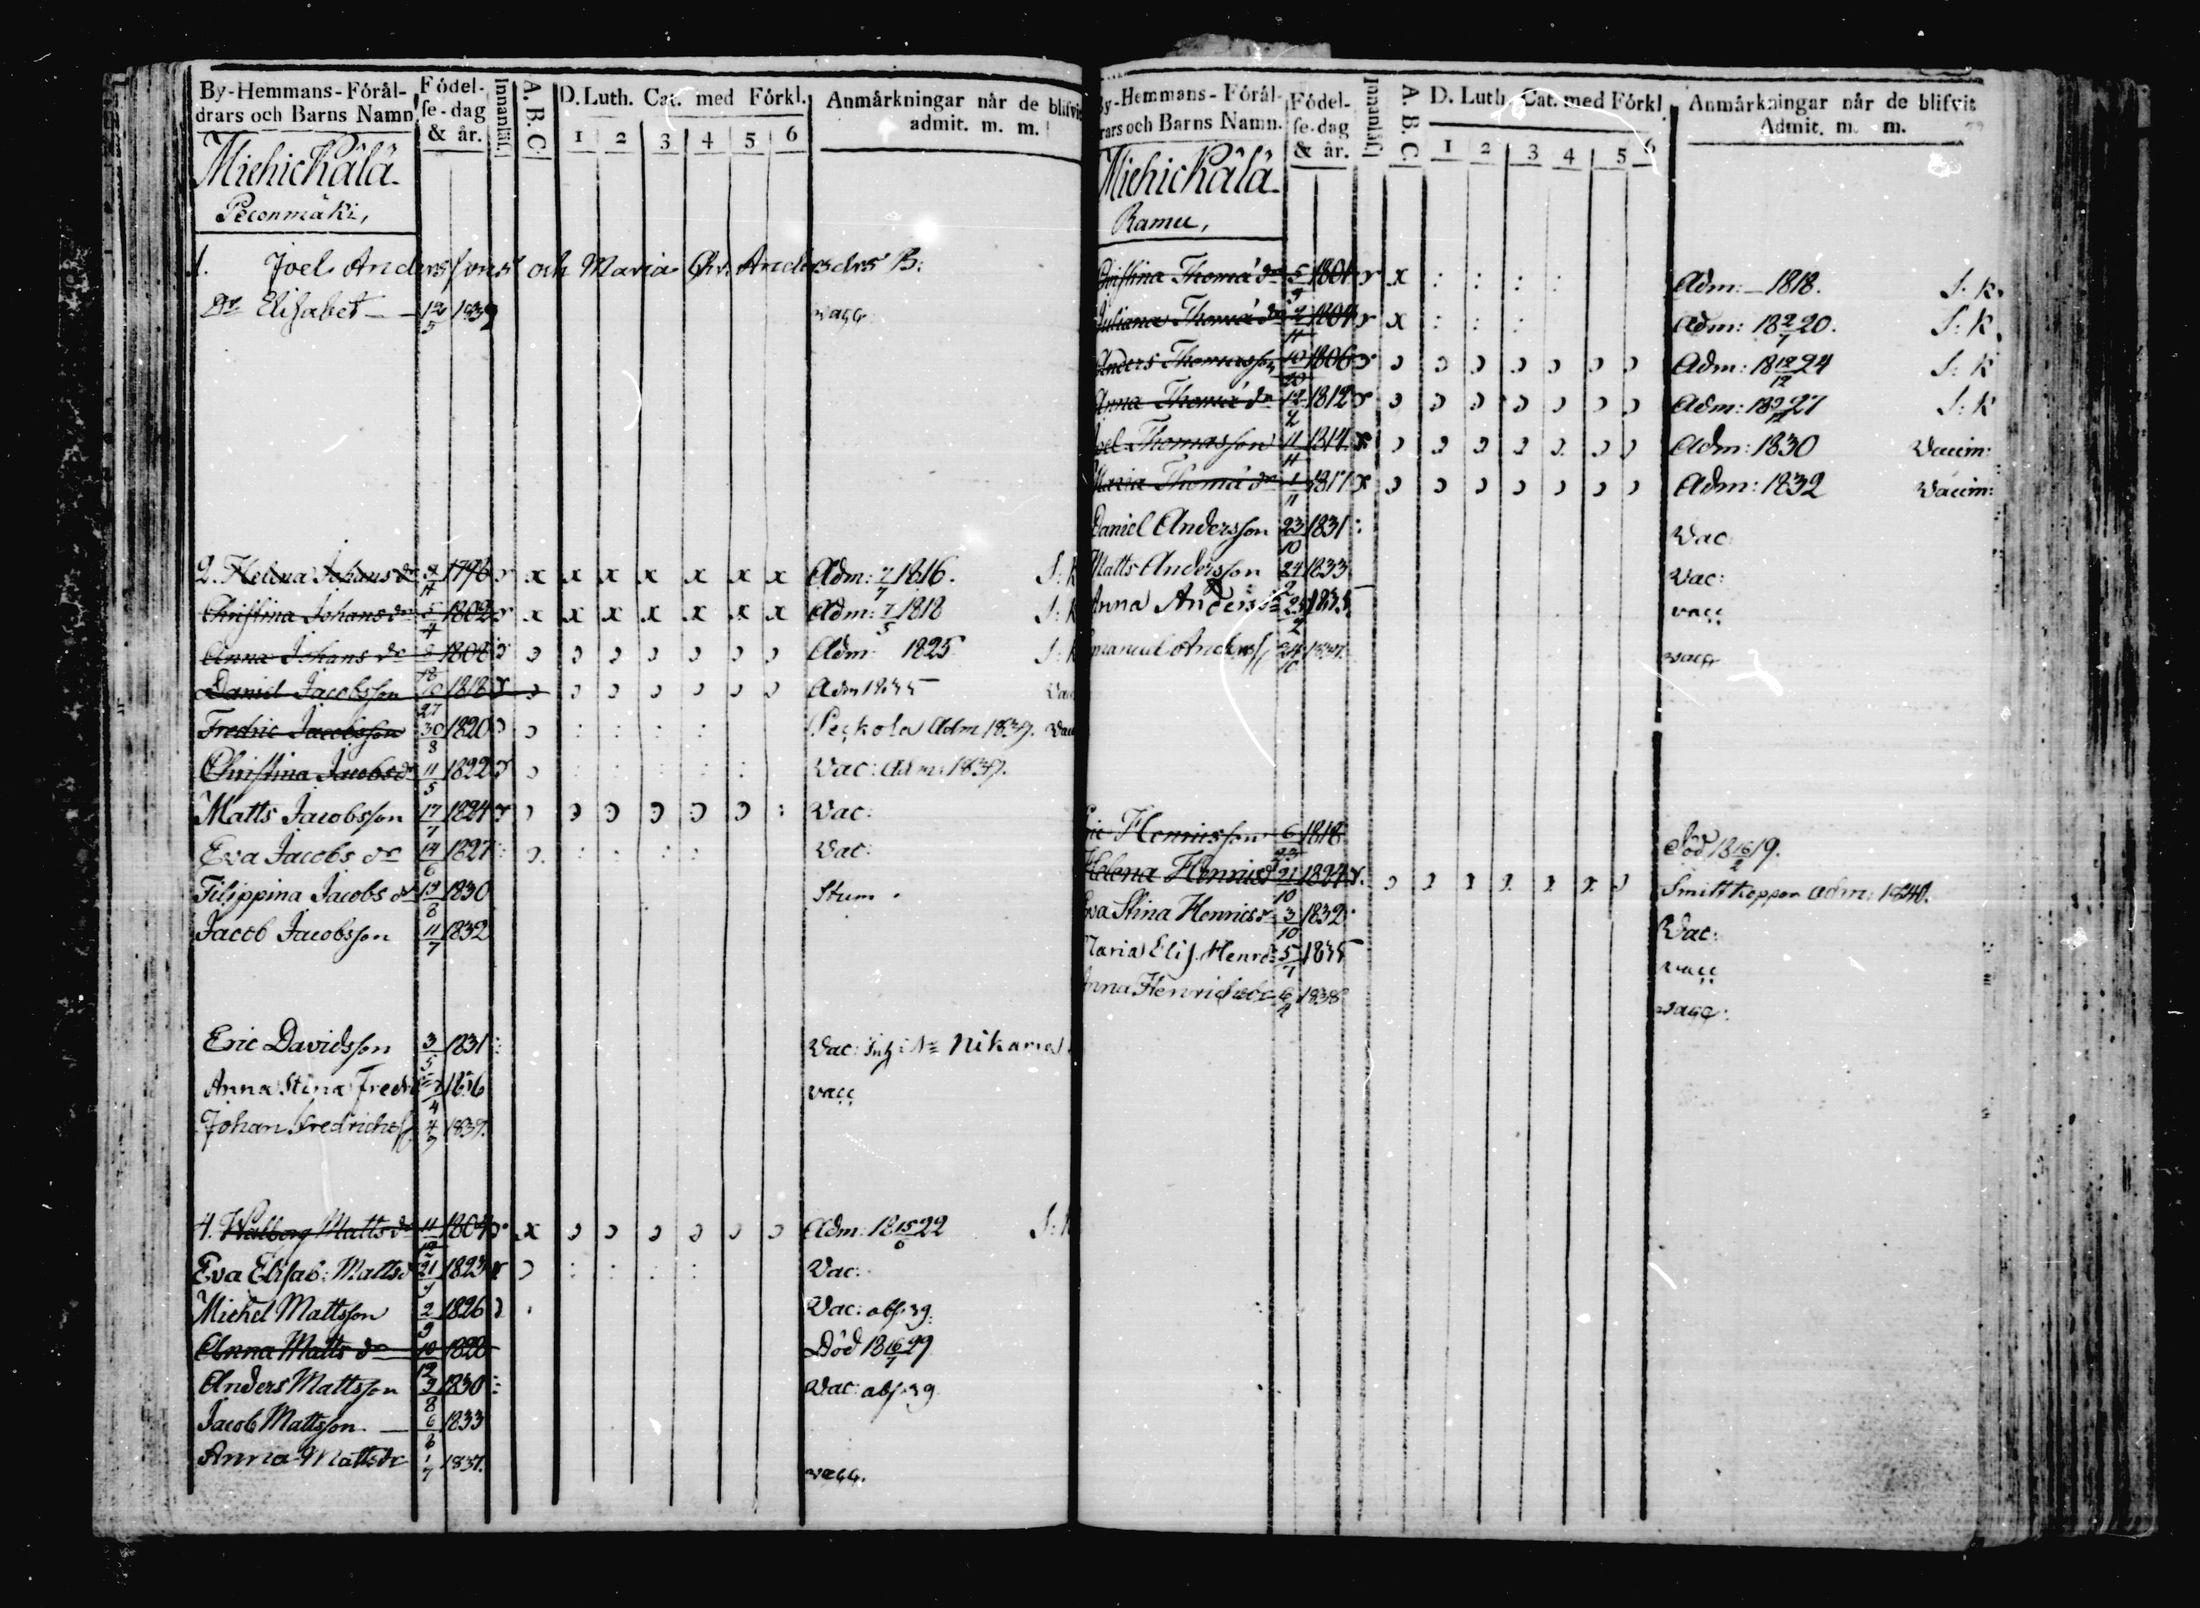 By-Hemmans-Förål-
drars och Barns Namn
Födel-
se-dag
& år.
Innanläs.
A. B. C.
D. Luth. Cat. med Förkl.
1 2 3 4 5 6
Anmårkningar når de blifvit
admit. m. m.
Miehickälä
Peconmäki,
1. Joel Anderssons och Maria Chr. Andersdrs B:
Dr Elisabet 12/5 1839 vacc
2. Helena Johans dr 1796 x x x x x x x Adm: 7/7 1816. S: K
Christina Johans dr 5/4 1802 x x x x x x x Adm: 7/5 1818 S: K
Anna Johans dr 1808 Adm: 1825 S: K
Daniel Jacobsson 1818 Adm 1835 Vac
Fredric Jacobsson 30/8 1820 Adm 1837. Vac
Christina Jacobs dr 11/5 1822 Vac: adm: 1837.
Matts Jacobsson 17/7 1824 Vac:
Eva Jacobs dr 14/6 1827 Vac:
Filippina Jacobs dr 19/8 1830 Stum
Jacob Jacobsson 11/7 1832
Eric Davidsson 3/5 1831 Vac:
Anna Stina Fredr 1836 vacc
Johan Fredrichss 4/9 1837.
4. Walborg Matts dr 11/12 1804 x Adm: 18 15/6 22 S: K
Eva Elisab: Matts d 21/9 1823 Vac:
Michel Mattsson 2/9 1826 Vac: abs. 39.
Anna Matts dr 10/12 1828 Död 18 16/7 29
Anders Mattsson 9/8 1830 Vac: abs. 39
Jacob Mattsson 6/8 1833
Anna Mattsdr 1/7 1837. vacc.
By-Hemmans-Förål-
rars och Barns Namn.
Födel-
se-dag
& år.
Innanläs.
A. B. C
D. Luth. Cat. med Förkl
1 2 3 4 5 6
Anmårkningar når de blifvit
Admit. m. m.
Miehickälä
Ramu,
Christina Thomæ dr 5/9 1801 x Adm: 1818. S: K.
Juliana Thomæ dr 2/11 1804 x Adm: 18 2/7 20. S: K.
Anders Thomasson 10/20 1806 Adm: 18 12/12 24 S: K
Anna Thomæ dr 12/2 1812 Adm: 27 S: K
Joel Thomasson 11/11 1814 Adm: 1830 Vaccin:
Maria Thomæ dr 1/11 1817 Adm: 1832 Vaccin:
Daniel Andersson 23/10 1831 Vac
Matts Andersson 24/2 1833 Vac:
Anna Anders dr 1835 vacc
manuel Anderss 24/10 1837. vacc
Eric Henricsson 6 1818 Död 18 16/2 19.
Helena Henricsd 21/10 1824 Smittkoppor adm: 1840.
Eva Stina Henricsdr 3/10 1832 Vac:
Maria Elis. Henrs 5/7 1835 vacc
Anna Henrichsdr 1838 vacc.